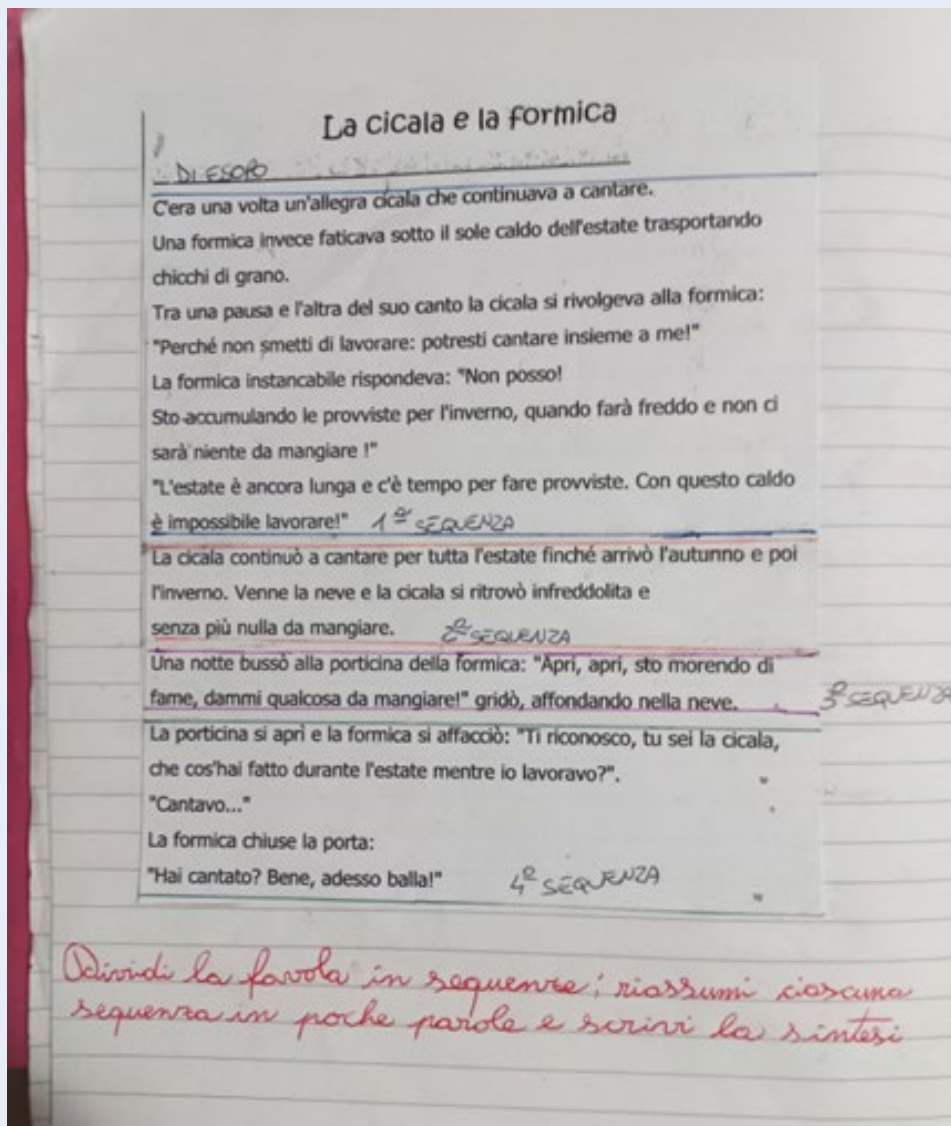 La cicala e la formica
DI ESOPO
C'era una volta un'allegra cicala che continuava a cantare.
Una formica invece faticava sotto il sole caldo dell'estate trasportando
chicchi di grano.
Tra una pausa e l'altra del suo canto la cicala si rivolgeva alla formica:
"Perché non smetti di lavorare: potresti cantare insieme a me!"
La formica instancabile rispondeva: "Non posso!
Sto accumulando le provviste per l'inverno, quando farà freddo e non ci
sarà niente da mangiare !"
"L'estate è ancora lunga e c'è tempo per fare provviste. Con questo caldo
è impossibile lavorare!" 1ª SEQUENZA
La cicala continuò a cantare per tutta l'estate finché arrivò l'autunno e poi
l'inverno. Venne la neve e la cicala si ritrovò infreddolita e
senza più nulla da mangiare. 2ª SEQUENZA
Una notte bussò alla porticina della formica: "Apri, apri, sto morendo di
fame, dammi qualcosa da mangiare!" gridò, affondando nella neve. 3ª SEQUENZA
La porticina si aprì e la formica si affacciò: "Ti riconosco, tu sei la cicala,
che cos'hai fatto durante l'estate mentre io lavoravo?".
"Cantavo..."
La formica chiuse la porta:
"Hai cantato? Bene, adesso balla!" 4ª SEQUENZA
Dividi la favola in sequenze; riassumi ciascuna
sequenza in poche parole e scrivi la sintesi